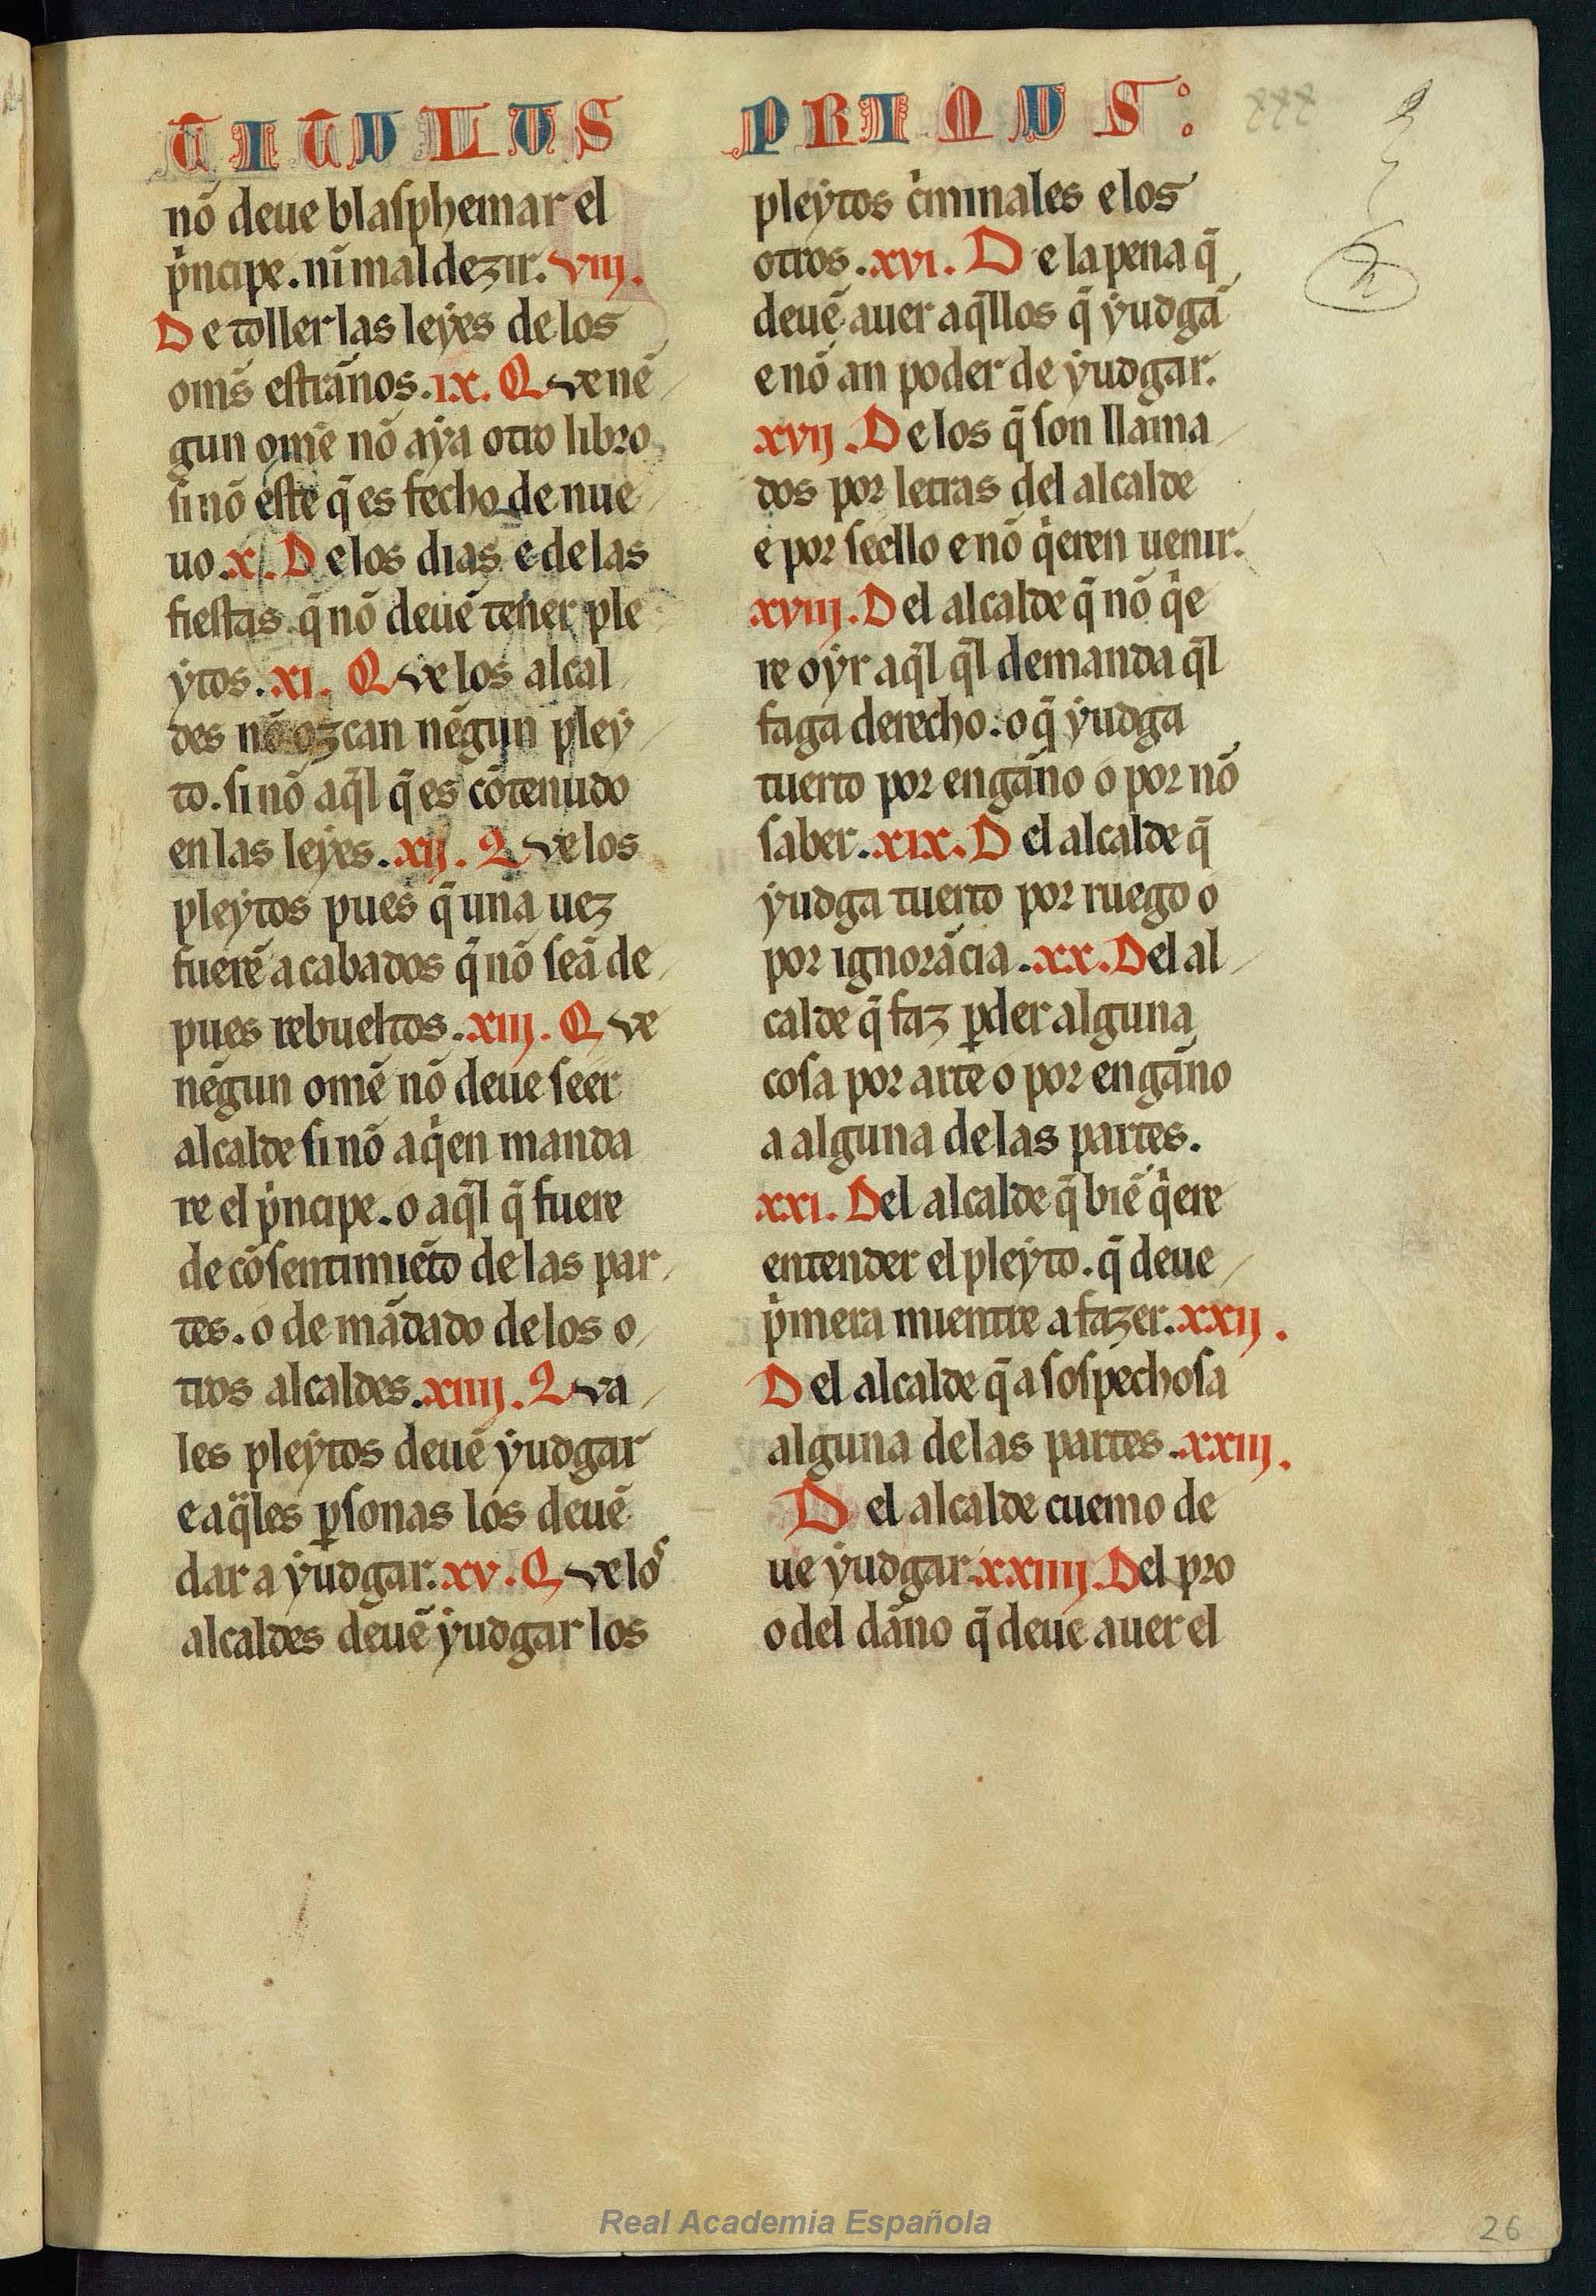 TITULUS PRIMUS:
nõ deue blasphemar el
p̍ncipe. nĩ mal dezir. VIII.
De toller las leyes de los
om̃s estrãnos. IX. Que nẽ
gun omẽ nõ aya otro libro
si nõ este q̃ es fecho de nue
uo. X. De los dias e de las
fiestas q̃ nõ deuẽ tener ple
ytos. XI. Que los alcal
des nõ ozcan nẽgun pley
to. si nõ aq̃l q̃ es cõtenudo
en las leyes. XII. Que los
pleytos pues q̃ una uez
fuerẽ acabados q̃ nõ seã de
pues rebueltos. XIII. Que
nẽgun omẽ nõ deue seer
alcalde si nõ aq̍en manda
re el p̍ncipe. o aq̃l q̃ fuere
de cõsentimiẽto de las par
tes. o de mãdado de los o
tros alcaldes. XIIII. Qua
les pleytos deuẽ yudgar
e aq̈les ꝑsonas los deuẽ
dar a yudgar. XV. Que los
alcaldes deuẽ yudgar los
pleytos c̍minales e los
otros. XVI. De la pena q̃
deuẽ auer aq̃llos q̃ yudgã
e nõ an poder de yudgar.
XVII. De los q̃ son llama
dos por letras del alcalde
e por seello e nõ q̍eren uenir.
XVIII. Del alcalde q̃ nõ q̍e
re oyr aq̃l q̃l demanda q̃l
faga derecho. o q̃ yudga
tuerto por engãno o por nõ
saber. XIX. Del alcalde q̃
yudga tuerto por ruego o
por ignorãcia. XX. Del al
calde q̃ faz ꝑder alguna
cosa por arte o por engãno
a alguna de las partes.
XXI. Del alcalde q̃ biẽ q̍ere
entender el pleyto. q̃ deue
p̍mera mientre a fazer. XXII.
Del alcalde q̃ a sospechosa
alguna de las partes. XXIII.
Del alcalde cuemo de
ue yudgar. XXIIII. Del pro
o del dãno q̃ deue auer el
Real Academia Española
26